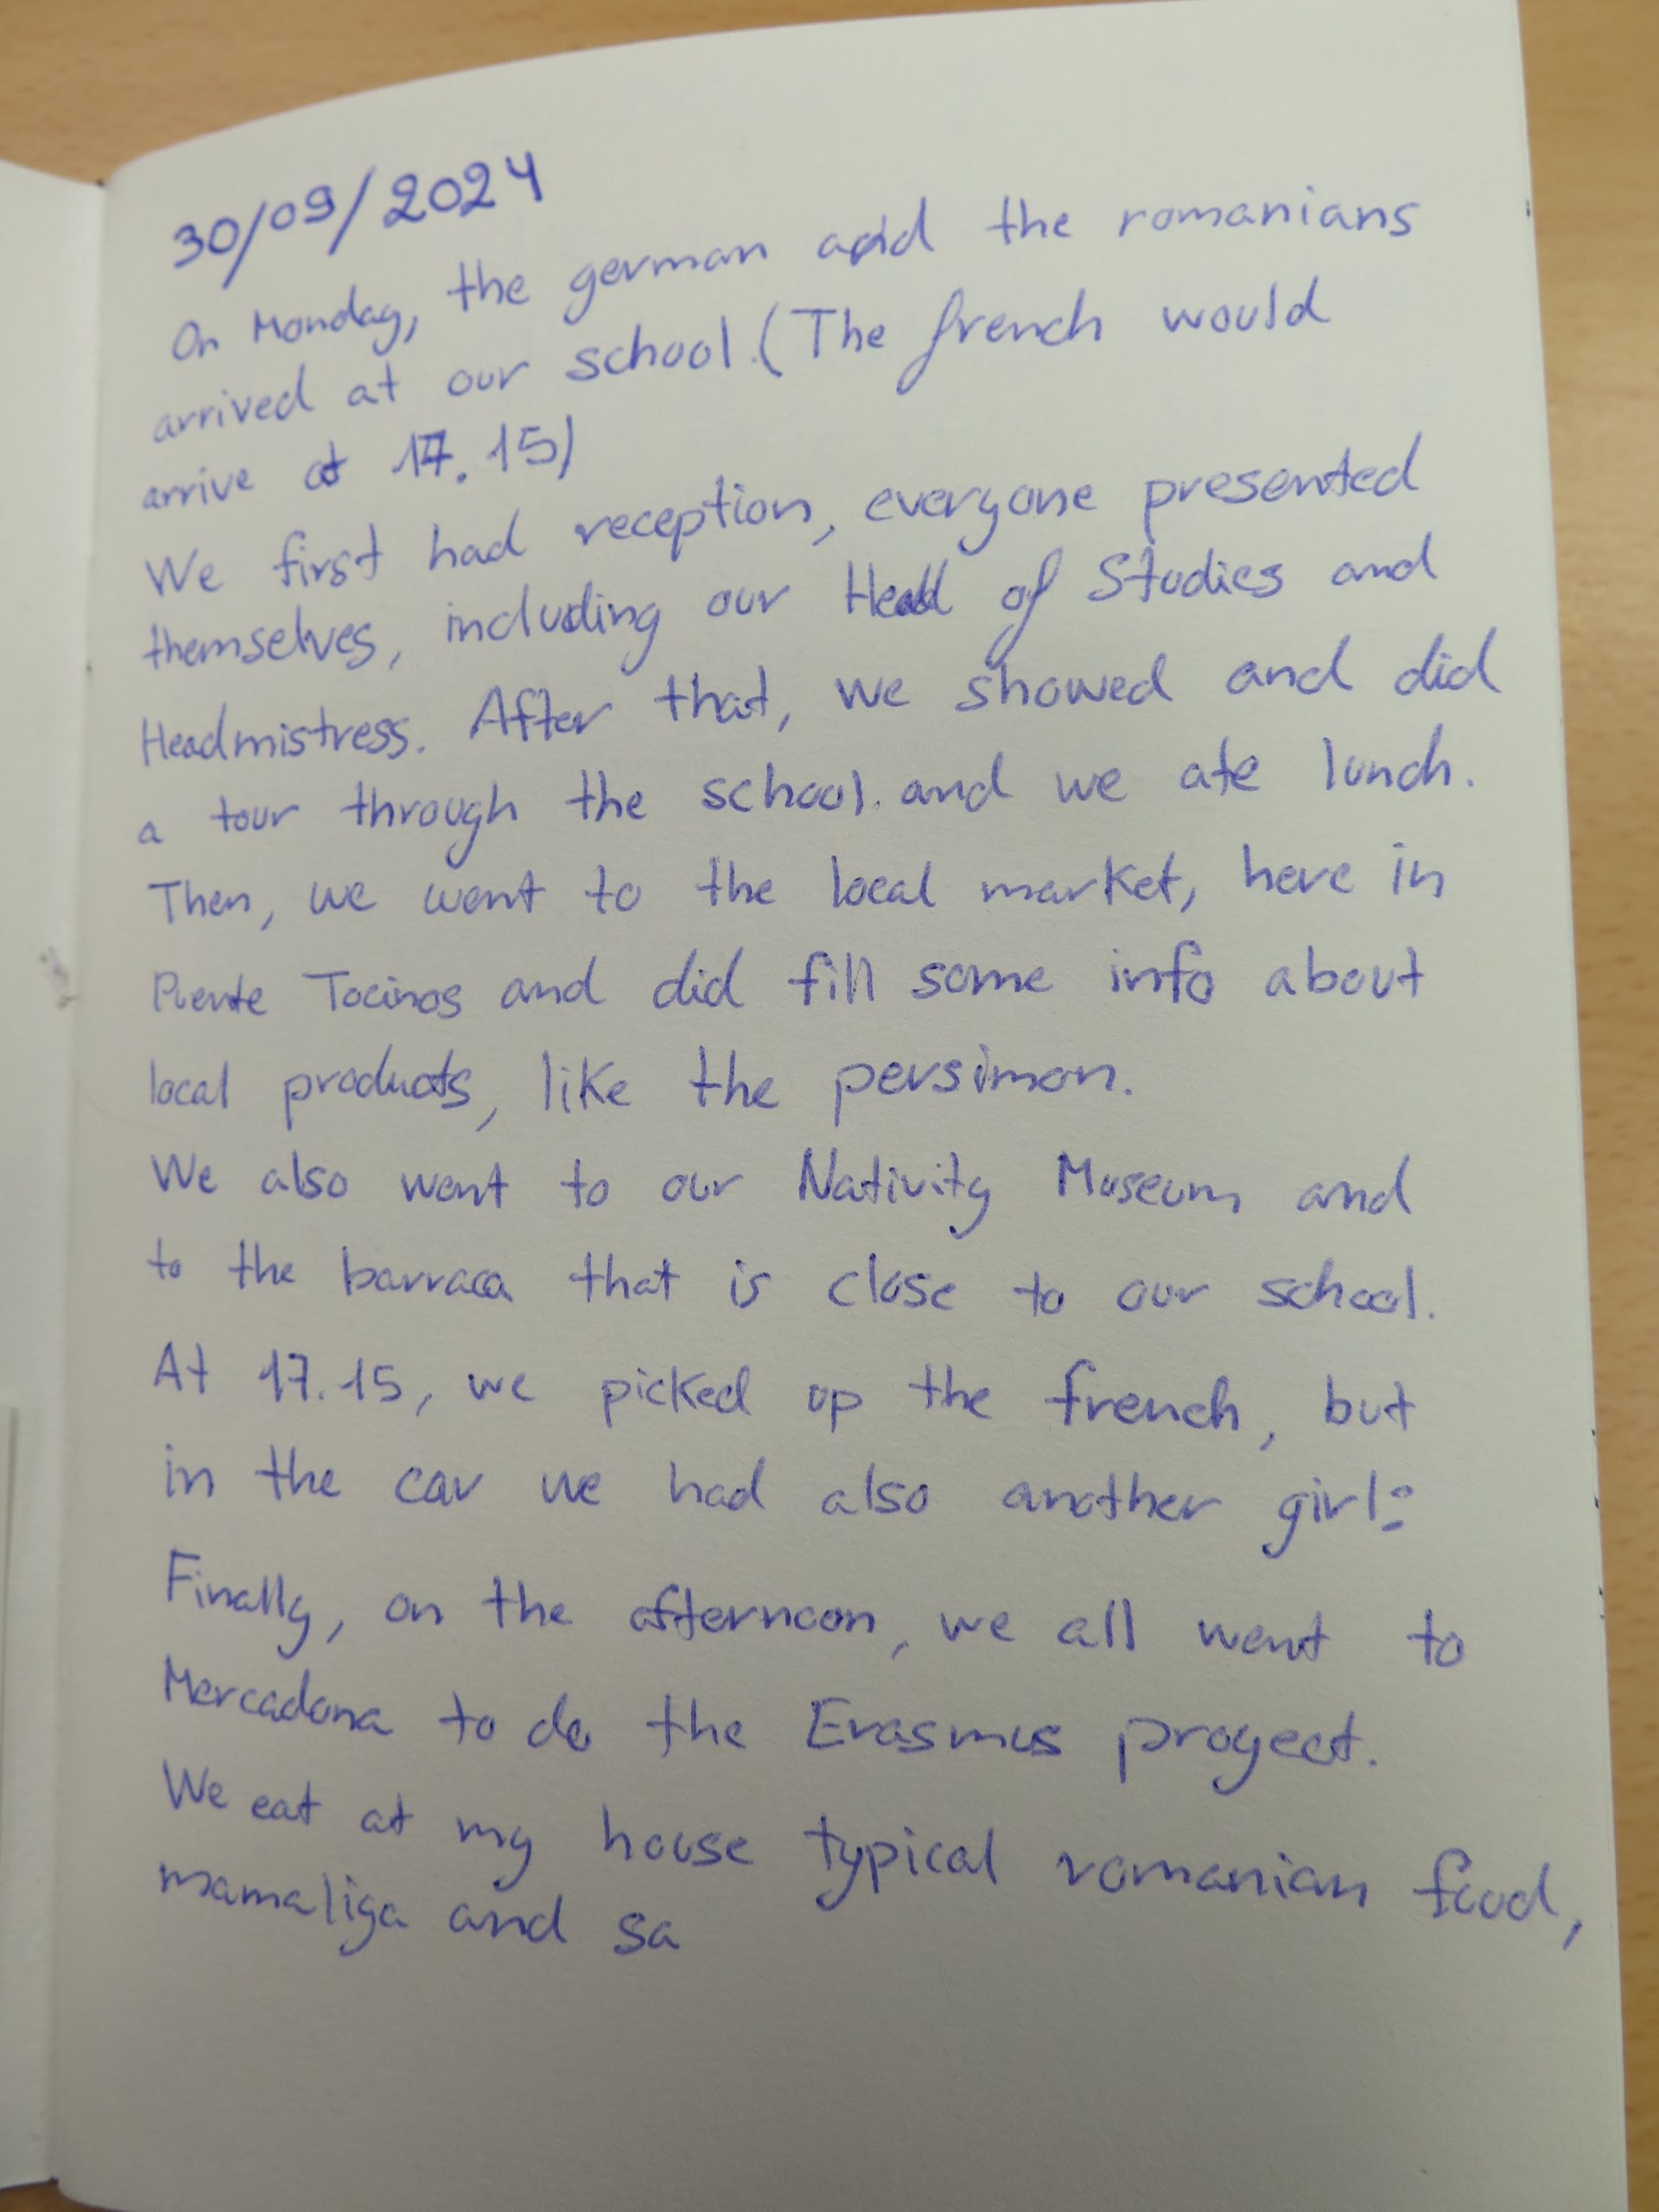 30/09/2024
On Monday, the german and the romanians
arrived at our school. (The french would
arrive at 17.15)
We first had reception, everyone presented
themselves, including our Head of Studies and
Headmistress. After that, we showed and did
a tour through the school. and we ate lunch.
Then, we went to the local market, here in
Puente Tocinos and did fill some info about
local products, like the persimon.
We also went to our Nativity Museum and
to the barraca that is close to our school.
At 17.15, we picked up the french, but
in the car we had also another girl:
Finally, on the afternoon, we all went to
Mercadona to do the Erasmus proyect.
We eat at my house typical romanian food,
mamaliga and sa